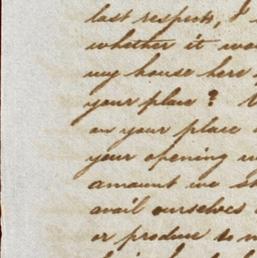 last respects, I
whether it wou
my house here
your place ?
in your place
your opening
amount we s
avail ourselves
or produce to m